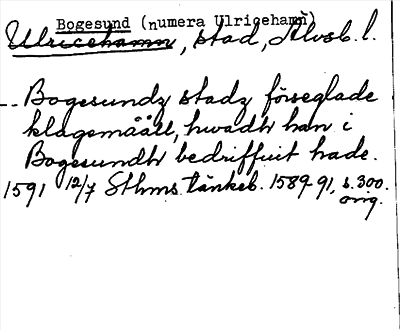 Bogesund (numera Ulricehamn)
Ulricehamn, stad, Älvsb. l.
-- Bogesundz stadz förseglade
klagemåått, hwadh han i
Bogesundh bedriffuit hade.
1591 12/7 Sthms tänkeb. 1589-91, s. 300.
orig.